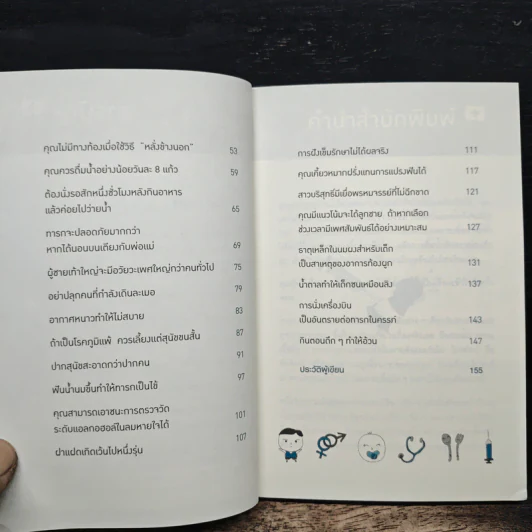 คุณไม่มีทางท้องเมื่อใช้วิธี "หลั่งข้างนอก" 53
คุณควรดื่มน้ำอย่างน้อยวันละ 8 แก้ว 59
ต้องนั่งรอสักหนึ่งชั่วโมงหลังกินอาหาร
แล้วค่อยไปว่ายน้ำ 65
ทารกจะปลอดภัยมากกว่า
หากได้นอนบนเตียงกับพ่อแม่ 69
ผู้ชายเท้าใหญ่จะมีอวัยวะเพศใหญ่กว่าคนทั่วไป 75
อย่าปลุกคนที่กำลังเดินละเมอ 79
อากาศหนาวทำให้ไม่สบาย 83
ถ้าเป็นโรคภูมิแพ้ ควรเลี้ยงแต่สุนัขขนสั้น 87
ปากสุนัขสะอาดกว่าปากคน 91
ฟันน้ำนมขึ้นทำให้ทารกเป็นไข้ 97
คุณสามารถเอาชนะการตรวจวัด
ระดับแอลกอฮอล์ในลมหายใจได้ 101
ฝาแฝดเกิดเว้นไปหนึ่งรุ่น 107
การฝังเข็มรักษาไม่ได้ผลจริง 111
คุณเคี้ยวหมากฝรั่งแทนการแปรงฟันได้ 117
สาวบริสุทธิ์มีเยื่อพรหมจรรย์ที่ไม่ฉีกขาด 121
คุณมีแนวโน้มจะได้ลูกชาย ถ้าหากเลือก
ช่วงเวลามีเพศสัมพันธ์ได้อย่างเหมาะสม 127
ธาตุเหล็กในนมผงสำหรับเด็ก
เป็นสาเหตุของอาการท้องผูก 131
น้ำตาลทำให้เด็กซนเหมือนลิง 137
การนั่งเครื่องบิน
เป็นอันตรายต่อทารกในครรภ์ 143
กินตอนดึก ๆ ทำให้อ้วน 147
ประวัติผู้เขียน 155